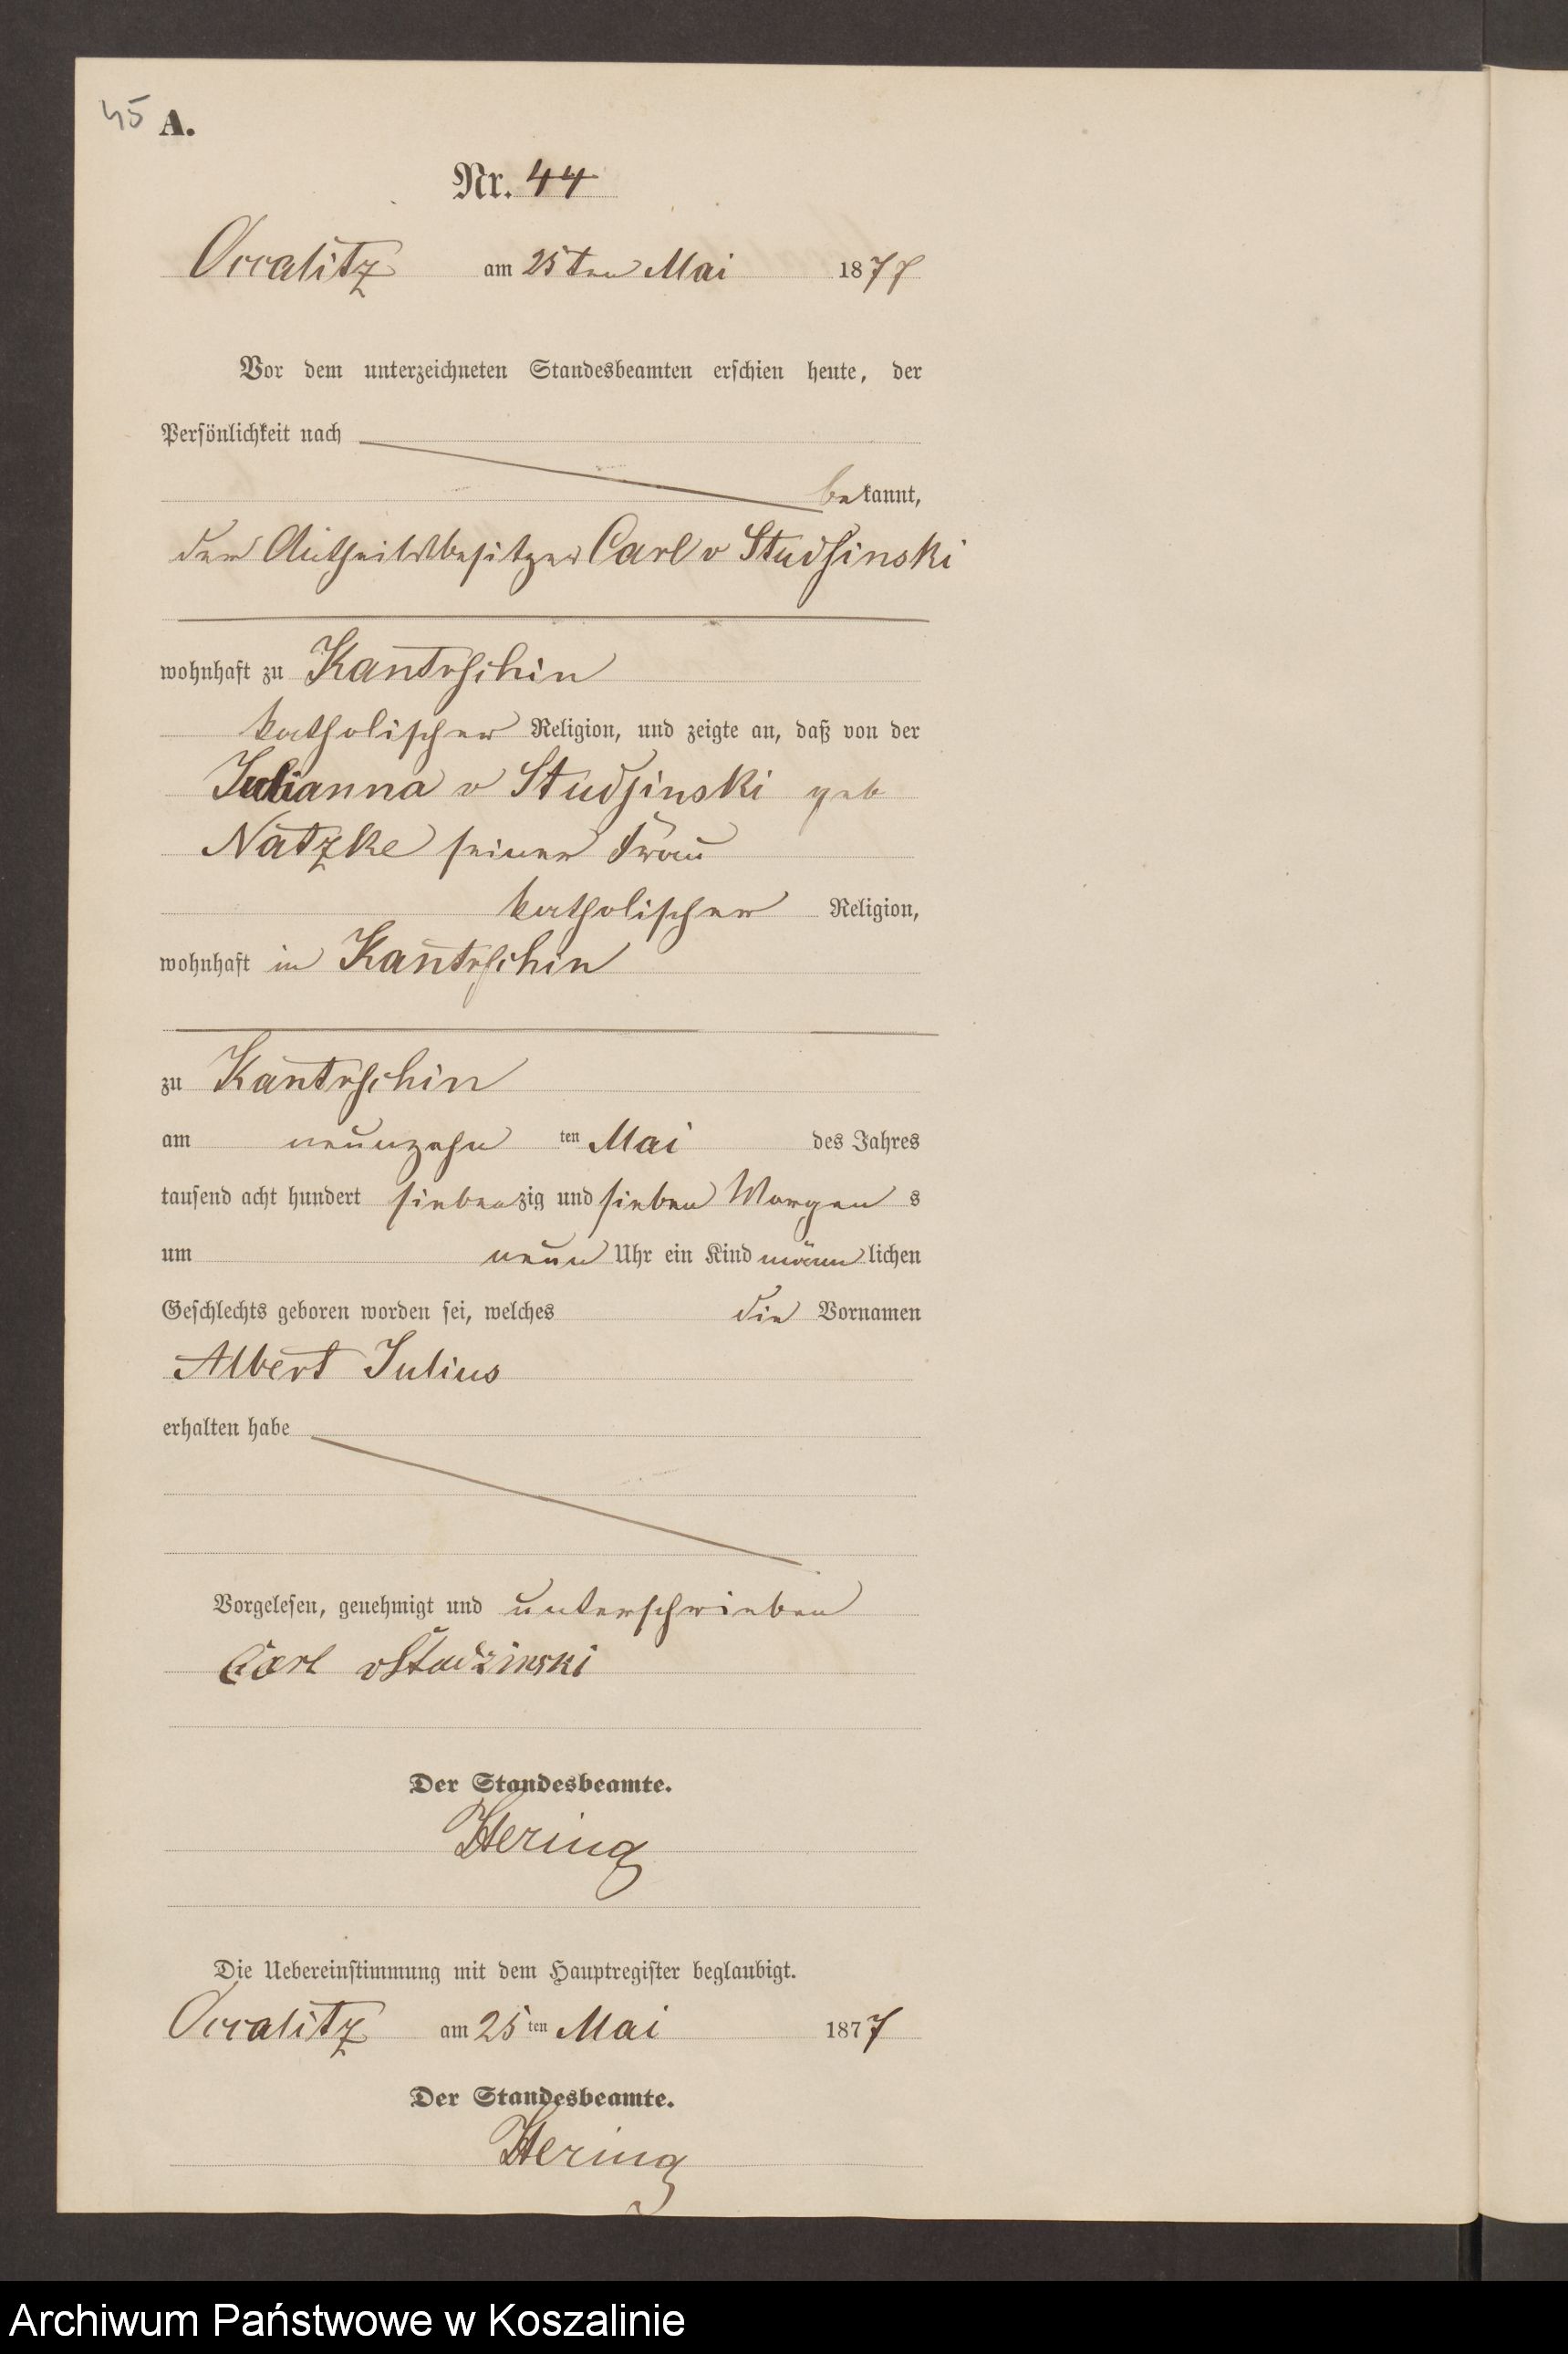 45 A.
Nr. 44
Occalitz am 25ten Mai 1877
Vor dem unterzeichneten Standesbeamten erschien heute, der
Persönlichkeit nach
bekannt,
der Antheilsbesitzer Carl v Studsinski
wohnhaft zu Kantrschin
katholischer Religion, und zeigte an, daß von der
Julianna v Studsinski geb
Natzke seiner Frau
katholischer Religion,
wohnhaft in Kantrschin
zu Kantrschin
am neunzehn ten Mai des Jahres
tausend acht hundert siebenzig und sieben Morgen s
um neun Uhr ein Kind männlichen
Geschlechts geboren worden sei, welches die Vornamen
Albert Julius
erhalten habe
Vorgelesen, genehmigt und unterschrieben
Carl v Studzinski
Der Standesbeamte.
Hering
Die Uebereinstimmung mit dem Hauptregister beglaubigt.
Occalitz am 25ten Mai 1877
Der Standesbeamte.
Hering
Archiwum Państwowe w Koszalinie